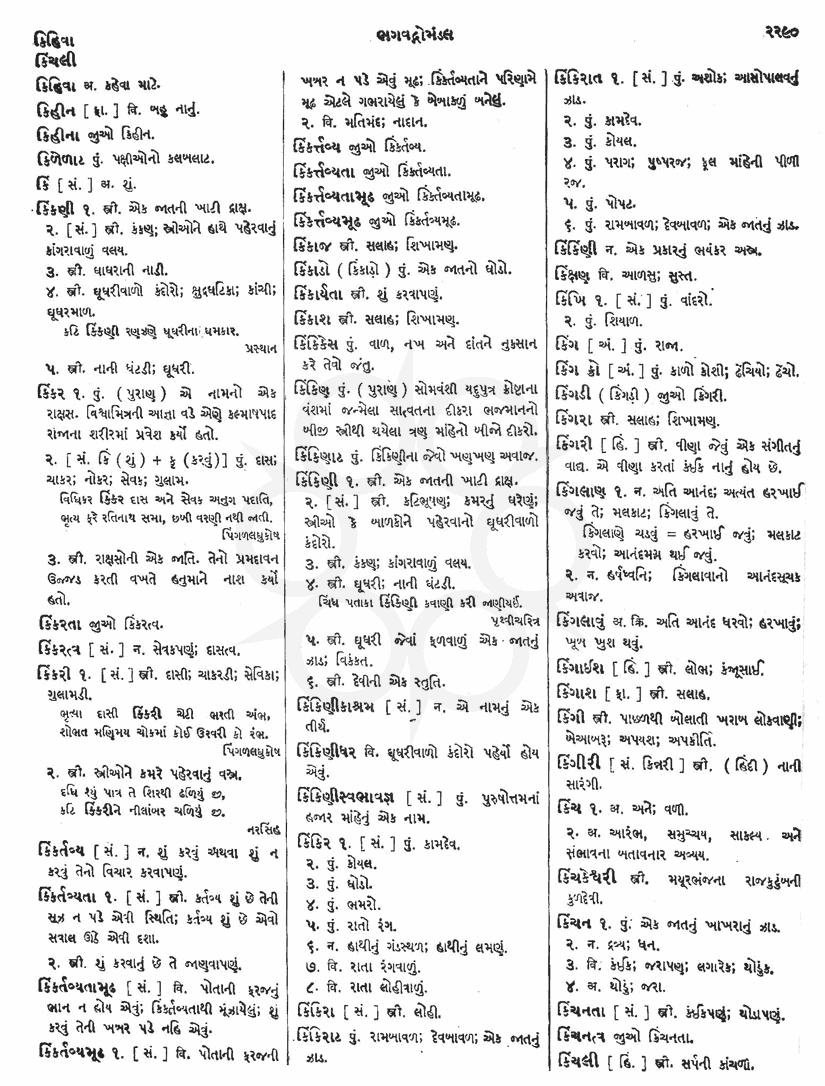 કિહિવા
કિંચલી
ભગવદ્ગોમંડલ
૨૨૯૦
કિહિવા અ. કહેવા માટે.
કિહીન [ ફા. ] વિ. બહુ નાનું.
કિહીના જુઓ કિહીન.
કિળેળાટ પું. પક્ષીઓનો કલબલાટ.
કિં [ સં. ] અ. શું.
કિંકણી ૧. સ્ત્રી. એક જાતની ખાટી દ્રાક્ષ.
૨. [ સં. ] સ્ત્રી. કંકણ; સ્ત્રીઓને હાથે પહેરવાનું
કાંગરાવાળું વલય.
૩. સ્ત્રી. ઘાઘરાની નાડી.
૪. સ્ત્રી. ઘૂઘરીવાળો કંદોરો; ક્ષુદ્રઘંટિકા; કાંચી;
ઘૂઘરમાળ.
કટિ કિંકણી રણઝણે ઘૂઘરીના ધમકાર.
પ્રસ્થાન
૫. સ્ત્રી. નાની ઘંટડી; ઘૂઘરી.
કિંકર ૧. પું. ( પુરાણ ) એ નામનો એક
રાક્ષસ. વિશ્વામિત્રની આજ્ઞા વડે એણે કલ્માષપાદ
રાજાના શરીરમાં પ્રવેશ કર્યો હતો.
૨. [ સં. કિં ( શું ) + કૃ (કરવું)] પું. દાસ;
ચાકર; નોકર; સેવક; ગુલામ.
વિધિકર કિંકર દાસ અને સેવક અનુગ પદાતિ,
ભૃત્ય ફરે રતિનાથ સમા, છબી વરણી નથી જાતી.
પિંગળલઘુકોષ
૩. સ્ત્રી. રાક્ષસોની એક જાતિ. તેનો પ્રમદાવન
ઉજ્જડ કરતી વખતે હનુમાને નાશ કર્યો
હતો.
કિંકરતા જુઓ કિંકરત્વ.
કિંકરત્વ [ સં. ] ન. સેવકપણું; દાસત્વ.
કિંકરી ૧. [ સં. ] સ્ત્રી. દાસી; ચાકરડી; સેવિકા;
ગુલામડી.
ભૃત્યા દાસી કિંકરી ચેટી ભરતી અંભ,
શોભત મણિમય ચોકમાં કોઈ ઉરવરી કો રંભ.
પિંગળલઘુકોષ
૨. સ્ત્રી. સ્ત્રીઓને કમરે પહેરવાનું વસ્ત્ર.
દધિ શ્યું પાત્ર તે શિરથી ઢળિયું છ,
કટિ કિંકરીને નીલાંબર ચળિયું છ.
નરસિંહ
કિંકર્તવ્ય [ સં. ] ન. શું કરવું અથવા શું ન
કરવું તેનો વિચાર કરવાપણું.
કિંકર્તવ્યતા ૧. [ સં. ] સ્ત્રી. કર્તવ્ય શું છે તેની
સૂઝ ન પડે એવી સ્થિતિ; કર્તવ્ય શું છે એવો
સવાલ ઊઠે એવી દશા.
૨. સ્ત્રી. શું કરવાનું છે તે જાણવાપણું.
કિંકર્તવ્યતામૂઢ [ સં. ] વિ. પોતાની ફરજનું
ભાન ન હોય એવું; કિંકર્તવ્યતાથી મૂંઝાયેલું; શું
કરવું તેની ખબર પડે નહિ એવું.
કિંકર્તવ્યમૂઢ ૧. [ સં. ] વિ. પોતાની ફરજની
ખબર ન પડે એવું મૂઢ; કિંકર્તવ્યતાને પરિણામે
મૂઢ એટલે ગભરાયેલું કે બેબાકળું બનેલું.
૨. વિ. મતિમંદ; નાદાન.
કિંકર્ત્તવ્ય જુઓ કિંકર્તવ્ય.
કિંકર્ત્તવ્યતા જુઓ કિંકર્તવ્યતા.
કિંકર્ત્તવ્યતામૂઢ જુઓ કિંકર્તવ્યતામૂઢ.
કિંકર્ત્તવ્યમૂઢ જુઓ કિંકર્તવ્યમૂઢ.
કિંકાજ સ્ત્રી. સલાહ; શિખામણ.
કિંકાડો ( કિંકાડ઼ો ) પું. એક જાતનો ઘોડો.
કિંકાર્યતા સ્ત્રી. શું કરવાપણું.
કિંકાશ સ્ત્રી. સલાહ; શિખામણ.
કિંકિકેસ પું. વાળ, નખ અને દાંતને નુકસાન
કરે તેવો જંતુ.
કિંકિણ પું. ( પુરાણ ) સોમવંશી યદુપુત્ર ક્રોષ્ટાના
વંશમાં જન્મેલા સાત્વતના દીકરા ભજમાનનો
બીજી સ્ત્રીથી થયેલા ત્રણ માંહેનો બીજો દીકરો.
કિંકિણાટ પું. કિંકિણીના જેવો ખણખણ અવાજ.
કિંકિણી ૧. સ્ત્રી. એક જાતની ખાટી દ્રાક્ષ.
૨. [ સં. ] સ્ત્રી. કટિભૂષણ; કમરનું ઘરેણું;
સ્ત્રીઓ કે બાળકોને પહેરવાનો ઘૂઘરીવાળો
કંદોરો.
૩. સ્ત્રી. કંકણ; કાંગરાવાળું વલય.
૪. સ્ત્રી. ઘૂઘરી; નાની ઘંટડી.
ચિંધ પતાકા કિંકિણી કવાણી કરી જાણીયઈ.
પૃથ્વીચરિત્ર
૫. સ્ત્રી. ઘૂઘરી જેવાં ફળવાળું એક જાતનું
ઝાડ; વિકંકત.
૬. સ્ત્રી. દેવીની એક સ્તુતિ.
કિંકિણીકાશ્રમ [ સં. ] ન. એ નામનું એક
તીર્થ.
કિંકિણીધર વિ. ઘૂઘરીવાળો કંદોરો પહેર્યો હોય
એવું.
કિંકિણીસ્વભાવજ્ઞ [ સં. ] પું. પુરુષોત્તમનાં
હજાર માંહેનું એક નામ.
કિંકિર ૧. [ સં. ] પું. કામદેવ.
૨. પું. કોયલ.
૩. પું. ઘોડો.
૪. પું. ભમરો.
૫. પું. રાતો રંગ.
૬. ન. હાથીનું ગંડસ્થળ; હાથીનું લમણું.
૭. વિ. રાતા રંગવાળું.
૮. વિ. રાતા લોહીવાળું.
કિંકિરા [ સં. ] સ્ત્રી. લોહી.
કિંકિરાટ પું. રામબાવળ; દેવબાવળ; એક જાતનું
ઝાડ.
કિંકિરાત ૧. [ સં. ] પું. અશોક; આસોપાલવનું
ઝાડ.
૨. પું. કામદેવ.
૩. પું. કોયલ.
૪. પું. પરાગ; પુષ્પરજ; ફૂલ માંહેની પીળી
રજ.
૫. પું. પોપટ.
૬. પું. રામબાવળ; દેવબાવળ; એક જાતનું ઝાડ.
કિંકિંણી ન. એક પ્રકારનું ભયંકર અસ્ત્ર.
કિંક્ષણ વિ. આળસુ; સુસ્ત.
કિંખિ ૧. [ સં. ] પું. વાંદરો.
૨. પું. શિયાળ.
કિંગ [ અં. ] પું. રાજા.
કિંગ ક્રો [ અં. ] પું. કાળો કોશી; ઢેંચિયો; ઢેંચો.
કિંગડી ( કિંગડ઼ી ) જુઓ કિંગરી.
કિંગરા સ્ત્રી. સલાહ; શિખામણ.
કિંગરી [ હિં. ] સ્ત્રી. વીણા જેવું એક સંગીતનું
વાદ્ય. એ વીણા કરતાં કંઈક નાનું હોય છે.
કિંગલાણ ૧. ન. અતિ આનંદ; અત્યંત હરખાઈ
જવું તે; મલકાટ; કિંગલાવું તે.
કિંગલાણે ચડવું = હરખાઈ જવું; મલકાટ
કરવો; આનંદમગ્ન થઈ જવું.
૨. ન. હર્ષધ્વનિ; કિંગલાવાનો આનંદસૂચક
અવાજ.
કિંગલાવું અ. ક્રિ. અતિ આનંદ ધરવો; હરખાવું;
ખૂબ ખુશ થવું.
કિંગાઈશ [ હિં. ] સ્ત્રી. લોભ; કંજૂસાઈ.
કિંગાશ [ ફા. ] સ્ત્રી. સલાહ.
કિંગી સ્ત્રી. પાછળથી બોલાતી ખરાબ લોકવાણી;
બેઆબરૂ; અપયશ; અપકીર્તિ.
કિંગીરી [ સં. કિન્નરી ] સ્ત્રી. ( હિંદી ) નાની
સારંગી.
કિંચ ૧. અ. અને; વળી.
૨. અ. આરંભ, સમુચ્ચય, સાકલ્ય અને
સંભાવના બતાવનાર અવ્યય.
કિંચકેશ્વરી સ્ત્રી. મયૂરભંજના રાજકુટુંબની
કુળદેવી.
કિંચન ૧. પું. એક જાતનું ખાખરાનું ઝાડ.
૨. ન. દ્રવ્ય; ધન.
૩. વિ. કંઈક; જરાપણ; લગારેક; થોડુંક.
૪. અ. થોડું; જરા.
કિંચનતા [ સં. ] સ્ત્રી. કંઈકપણું; થોડાપણું.
કિંચનત્વ જુઓ કિંચનતા.
કિંચલી [ હિં. ] સ્ત્રી. સર્પની કાંચળી.